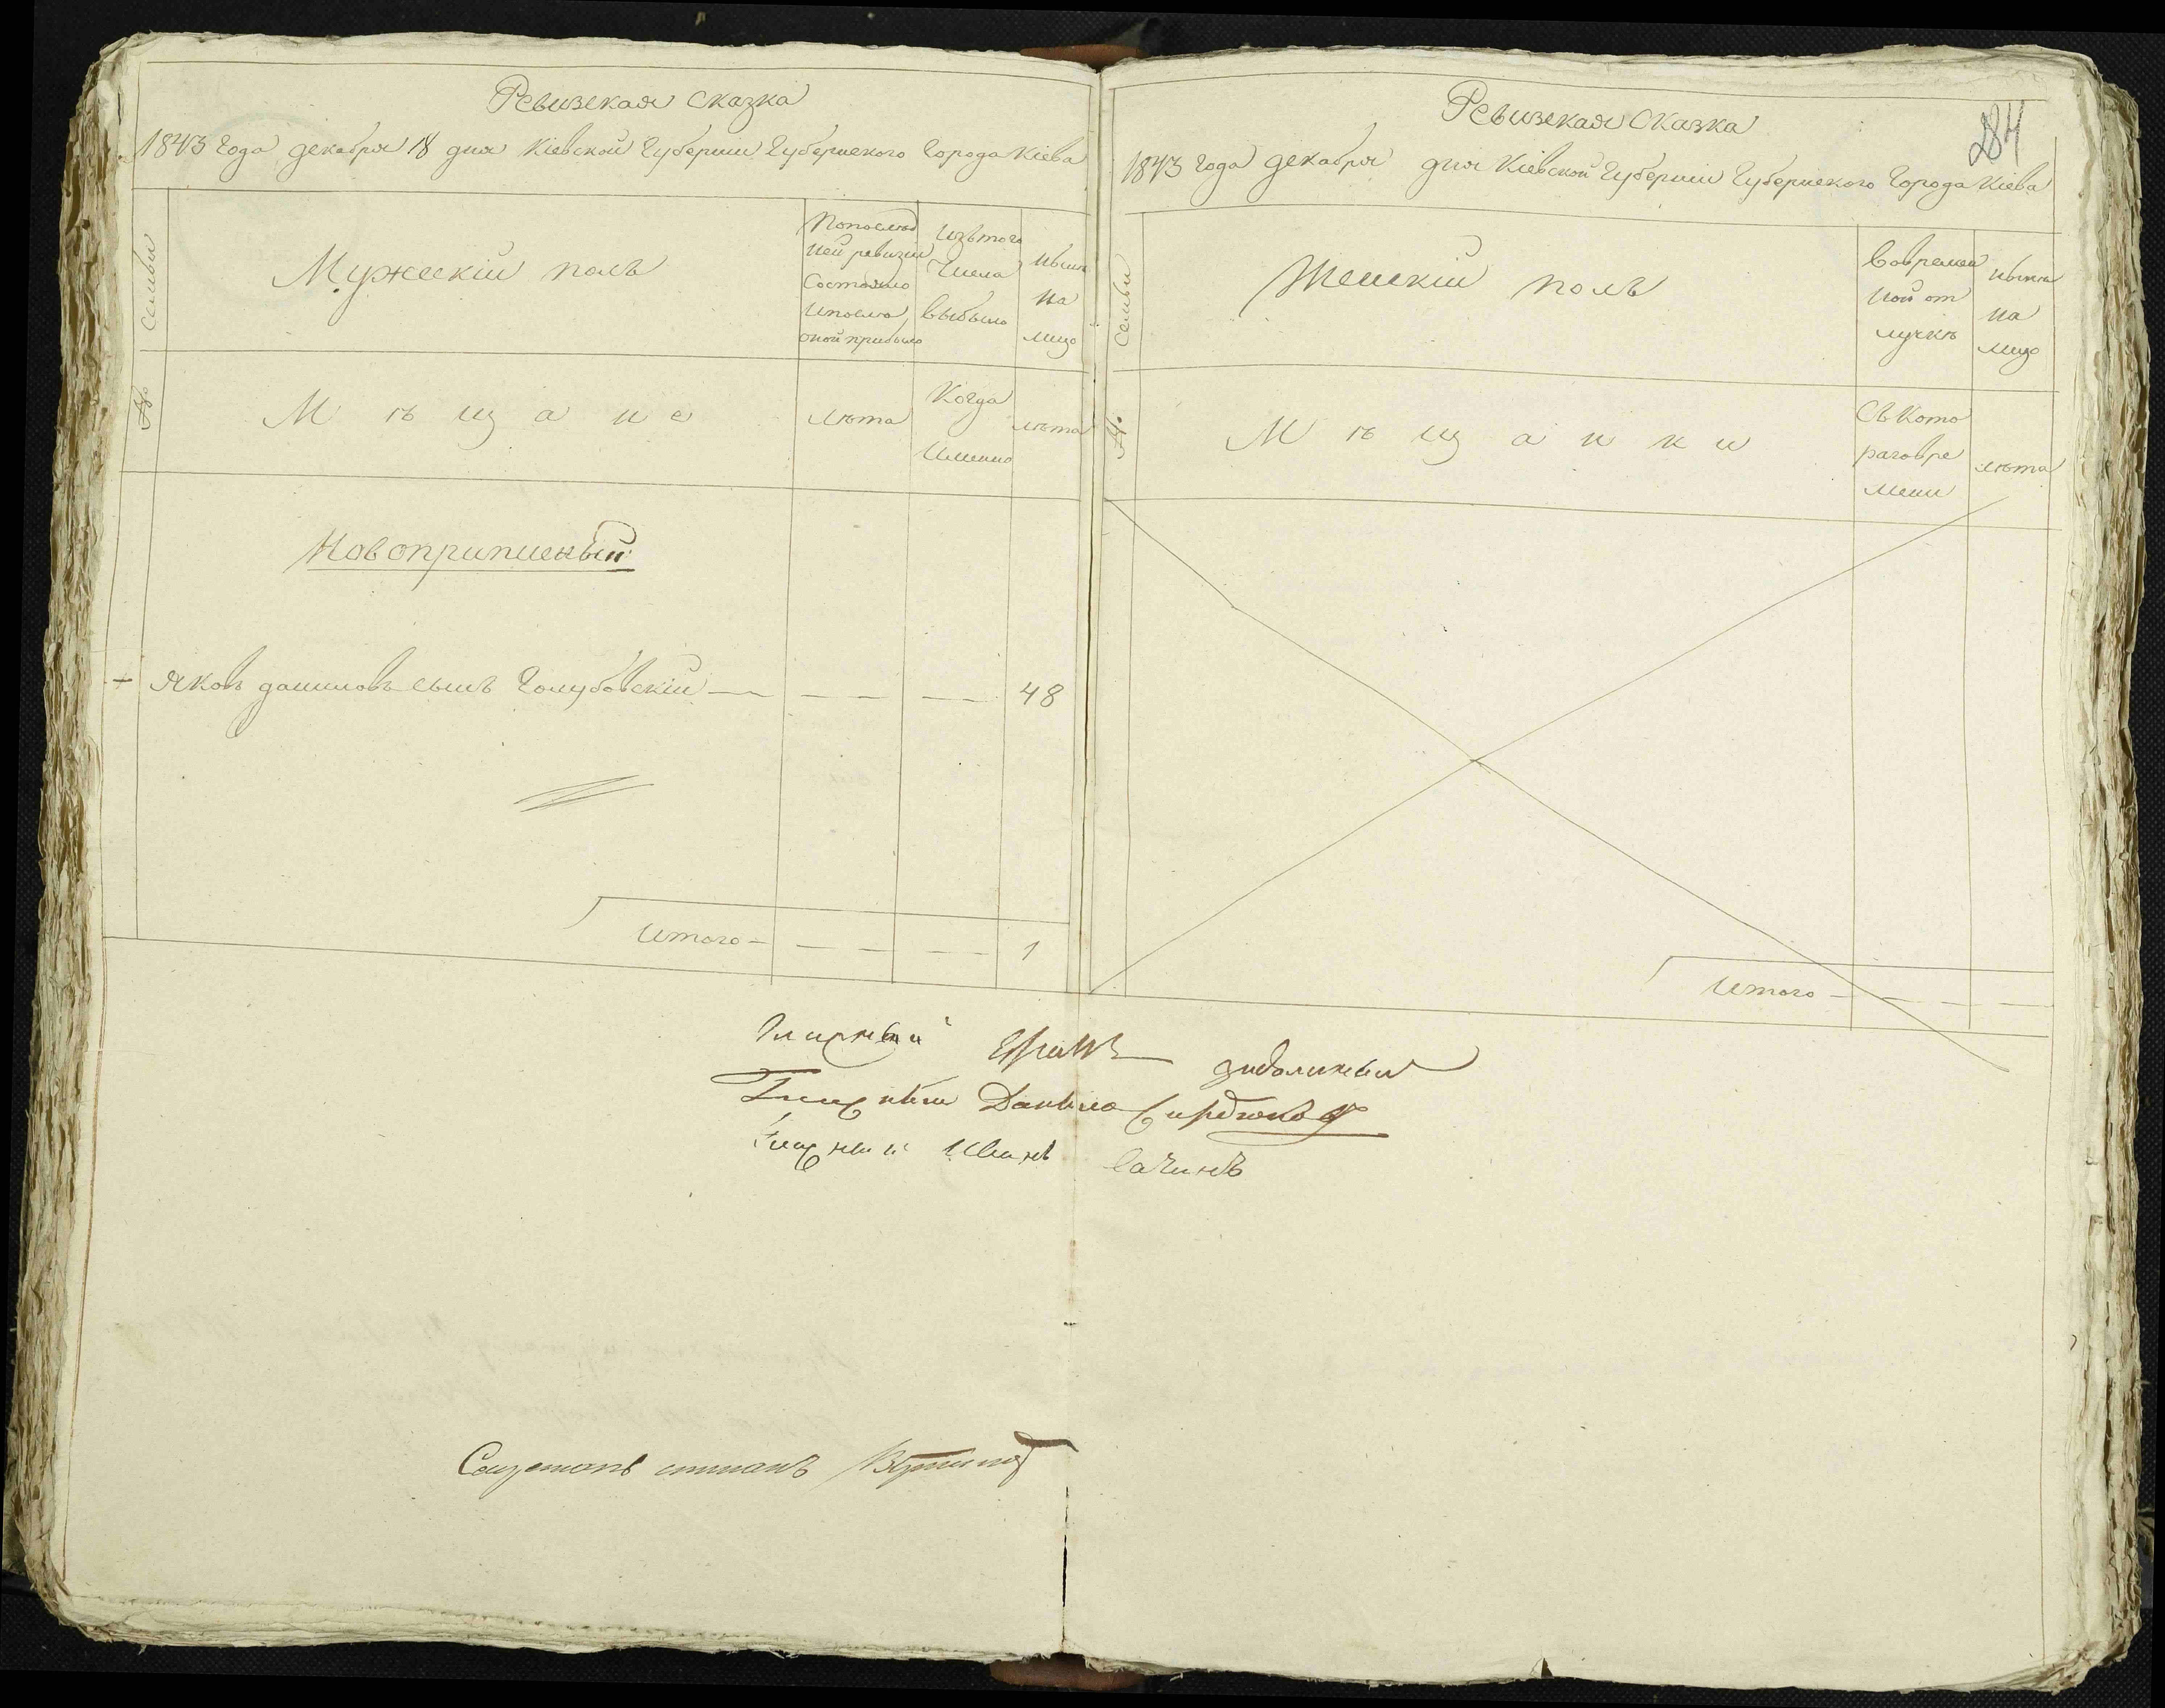 Ревизская сказка
1843 года декабря 18 дня Кіевской Губерніи Губернского Города Кіева
Семьи
Мужескій полъ
Попослѣд
ней ревизіи
Состояло
ипослѣ
оной прибыло
Изътого
Числа
выбыло
нынѣ
на
лицо
№
Мѣщане
лѣта
Когда
Имянно
лѣта
Новоприписный
Яковъ даниловъ сынъ Голубовскій — — — — 48
Итого — — — — 1
Ревизская Сказка
284
1843 года декабря дня Кіевской Губерніи Губернского Города Кіева
Семьи
Женскій полъ
Вовремен
ной от
лучкѣ
нынѣ
на
лицо
№
Мѣщанки
Съ Кото
раго вре
мени
лѣта
Итого — — — —
Гласный
Гласный Данило Сердюковъ
Гласный Иванъ